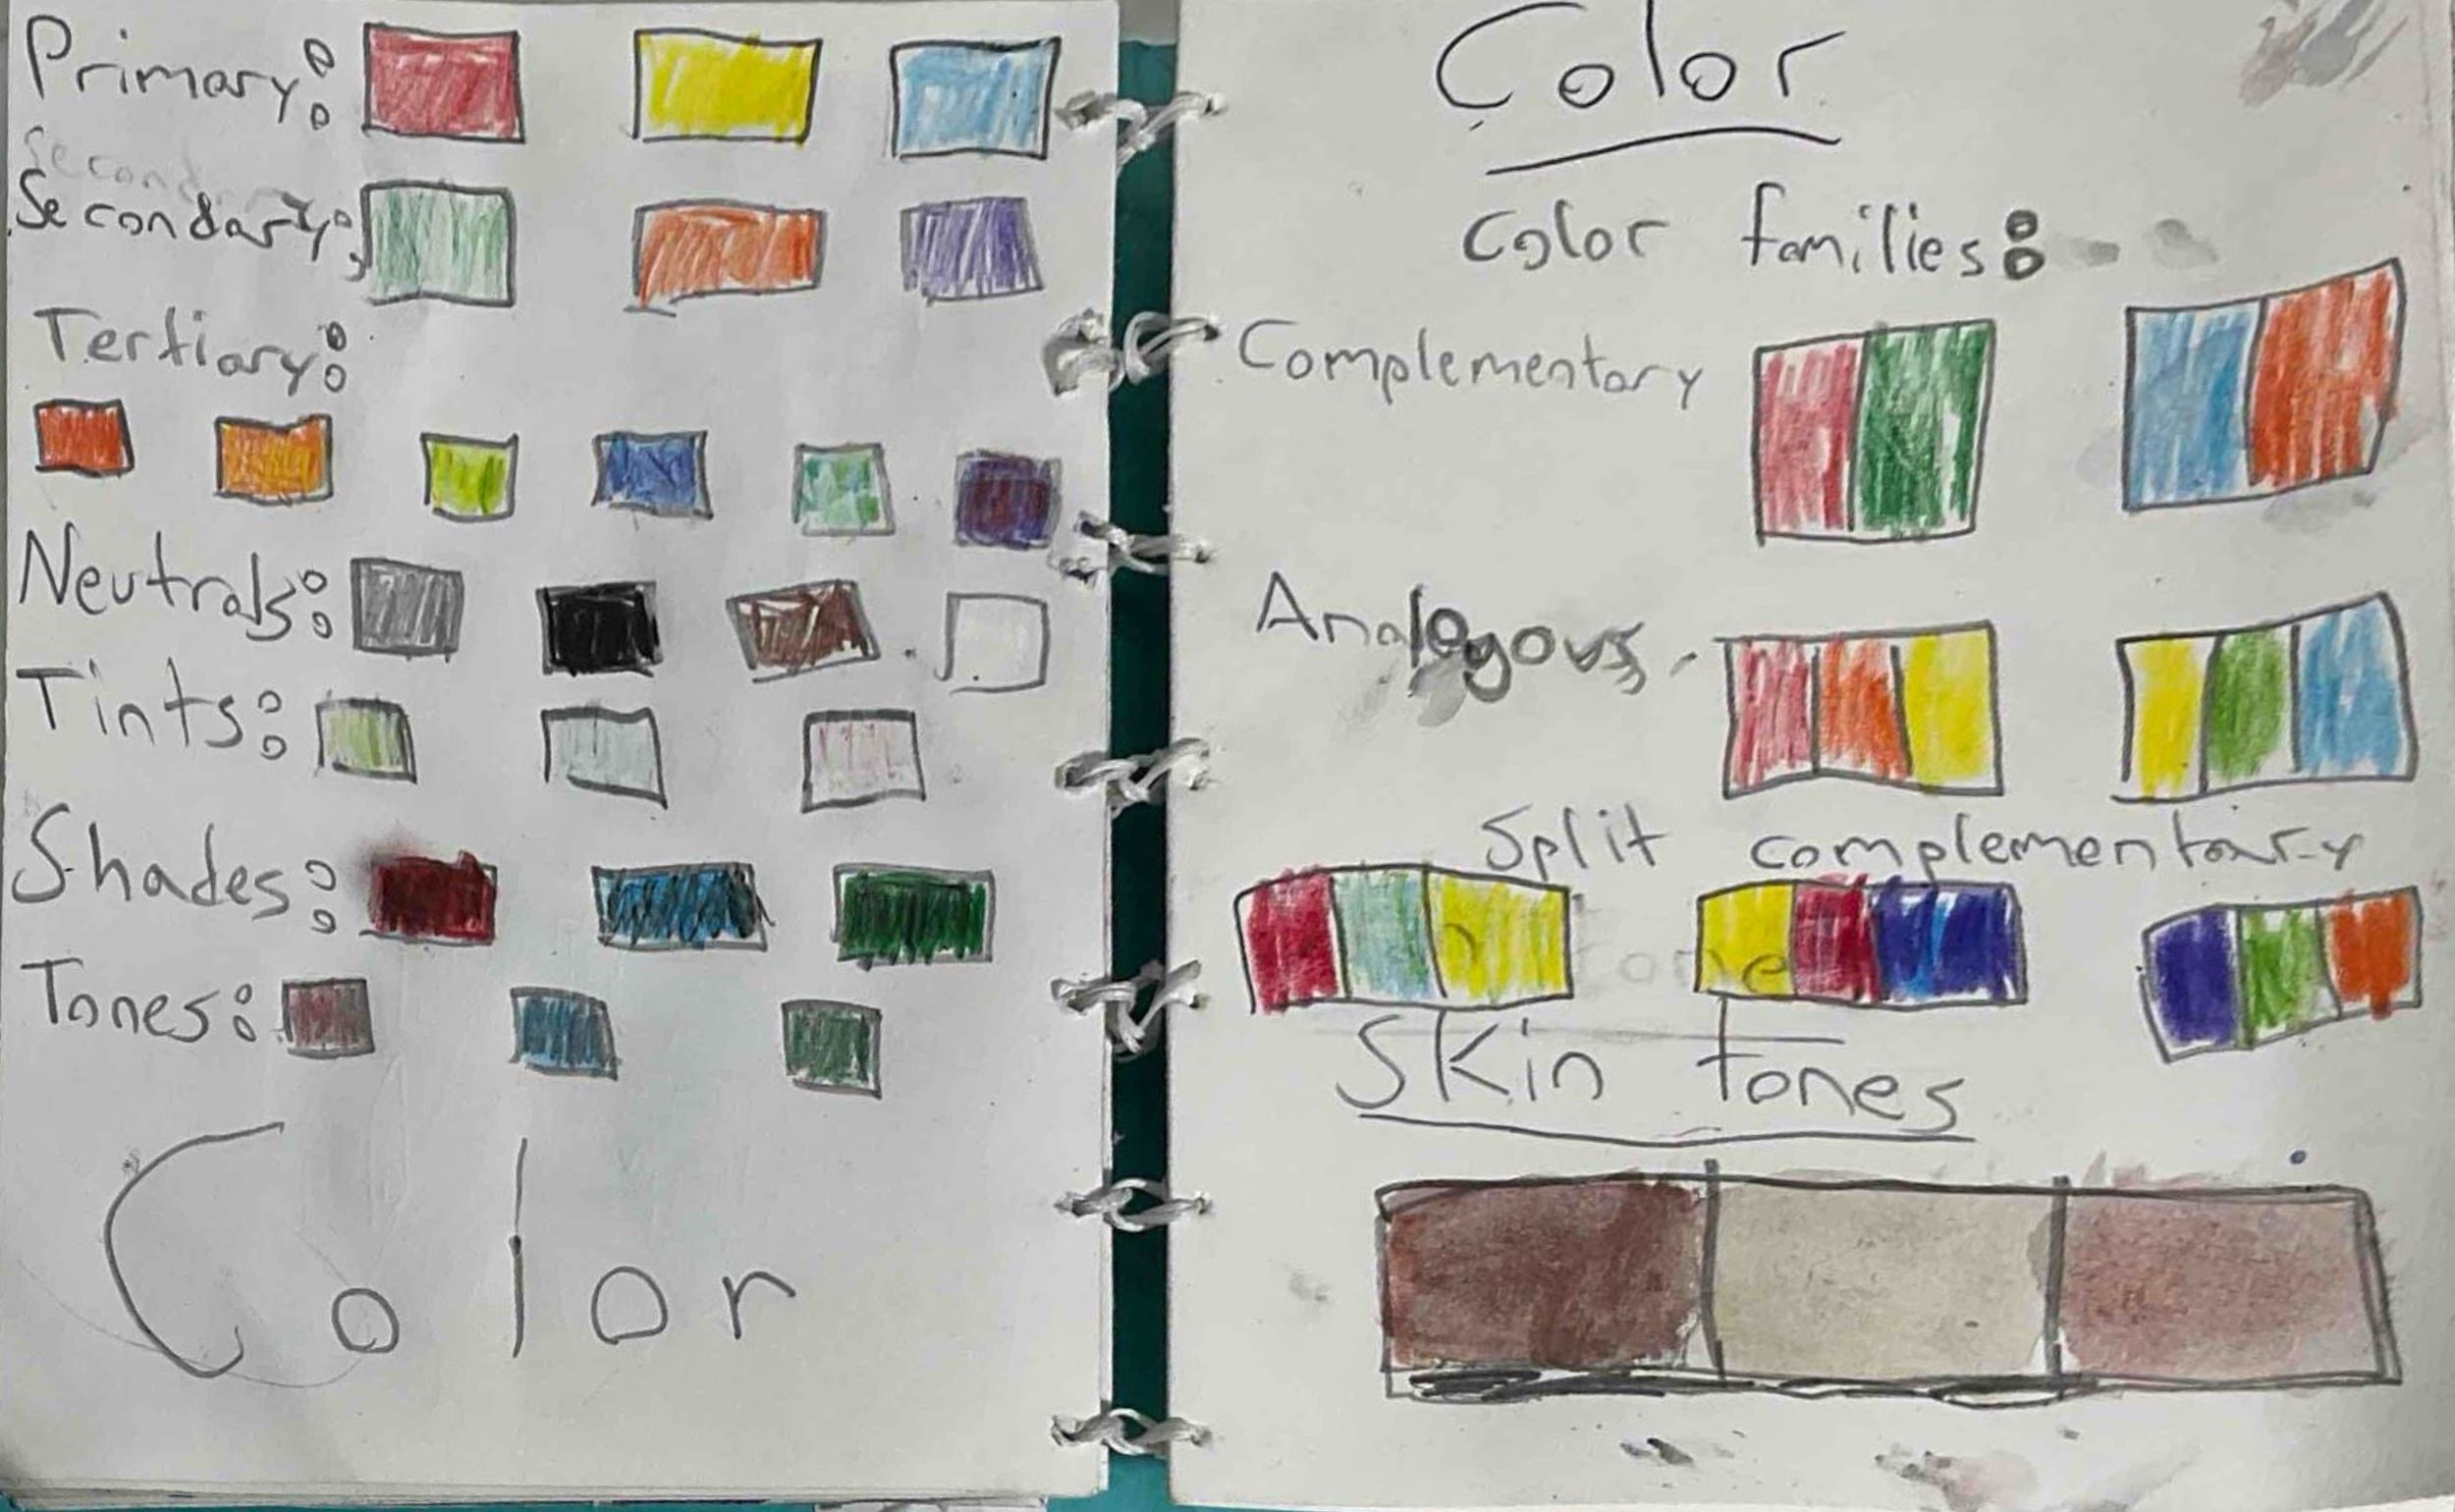 Primary:
Secondary
Secondary:
Tertiary:
Neutrals:
Tints:
Shades:
Tones:
Color
Color
Color families:
Complementary
Analogous
Split complementary
tone
Skin tones